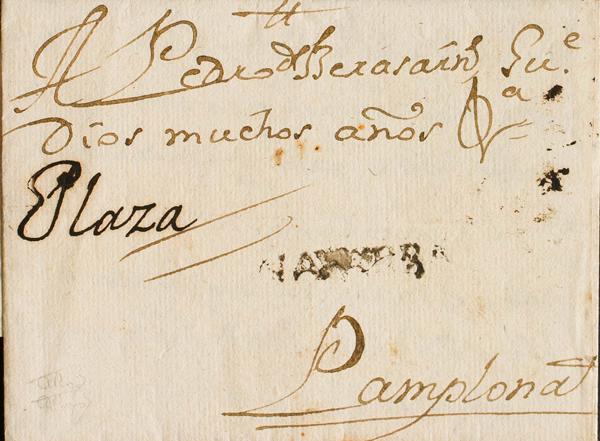 A Pedro de Berasain Gu.e
Dios muchos años
Plaza
NAVARRA
Pamplona